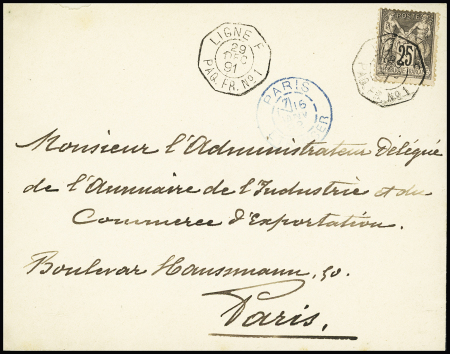 LIGNE F
29
DEC
91
PAQ. FR. No 1
POSTE
25
PAQ. FR. No 1
PARIS
16
Monsieur l'Administrateur Délégué
de l'Annuaire de l'Industrie et du
Commerce d'Exportation.
Boulevar Haussmann, 50.
Paris.